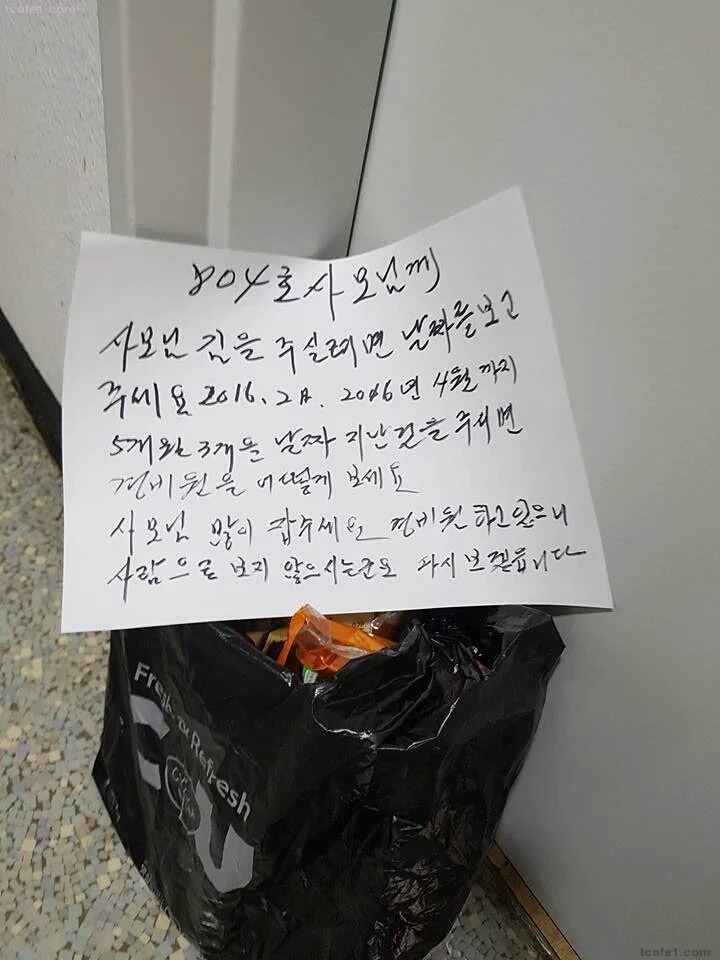 tcafe1.com
804호 사모님께
사모님 김을 주실려면 날짜를 보고
주세요 2016. 2월. 2016년 4월 까지
5개와 3개을 날짜 지난것을 주시면
경비원을 어떻게 보세요
사모님 많이 잡수세요 경비원 하고 있으니
사람으로 보지 않으시는군요 다시 보겠읍니다
Fresh & Refresh
CU
tcafe1.com